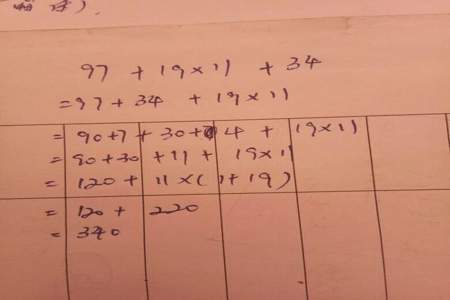 97 + 19×11 + 34
=97+ 34 + 19×11
= 90+7+30+4 + 19×11
= 90+30 +11+ 19×11
= 120+ 11×(1+19)
= 120+ 220
= 340